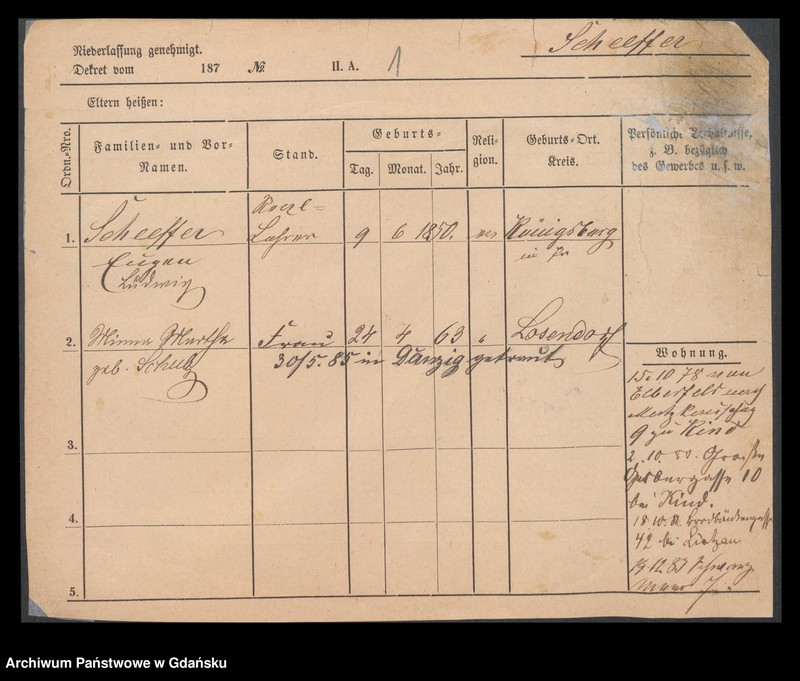 Scheeffer
Niederlassung genehmigt.
Dekret vom 187 No. II. A. 1
Eltern heißen:
Ordn.-Nro.
Familien- und Vor-Namen.
Stand.
Geburts-
Tag. Monat. Jahr.
Religion.
Geburts-Ort.
Kreis.
Persönliche Verhältnisse,
z. B. bezüglich
des Gewerbes u. s. w.
1. Scheeffer Lehrer 9 6 1850. Königsberg
Eugen in Pr
Ludwig
2. Minna Martha Frau 24 4 63 Losendorf
geb. Schulz 30/5. 85 in Danzig getraut
Wohnung.
15. 10 78 von
Elberfeld nach
9 zu Kind
2. 10. 80. Große
Gerbergasse 10
bei Kind.
18 10. Brodbänkengasse
42 bei Lietzau
12. 83 Schwarz
Meer
3.
4.
5.
Archiwum Państwowe w Gdańsku